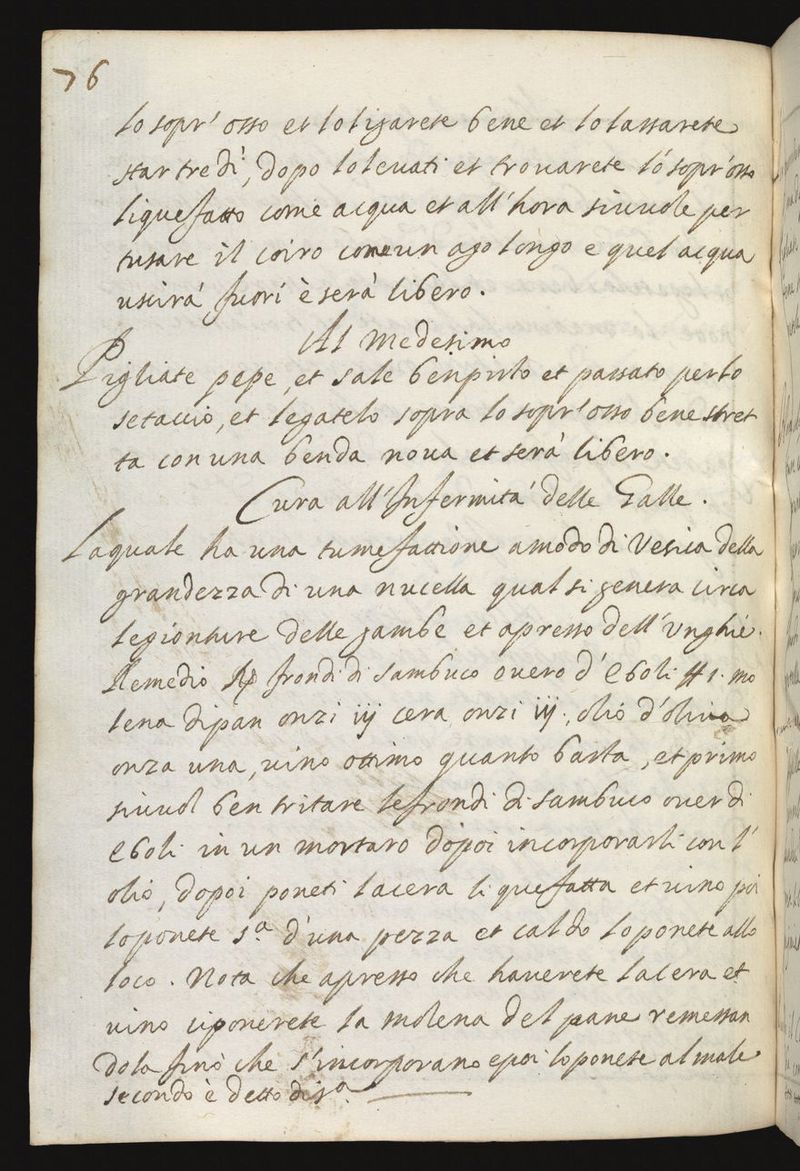 76
lo sopr' osso et lo ligarete bene et lo lassarete
star tre dì, dopo lo levati et trovarete lo sopr'osso
liquefatto come acqua et all'hora si vuole per
tusare il coiro come un ago longo e quel acqua
uscirà fuori è serà libero.
Al medesimo
Pigliate pepe, et sale ben pisto et passato per lo
setaccio, et legatelo sopra lo sopr'osso bene stret
ta con una benda nova et serà libero.
Cura all'Infermità delle Galle.
Laquale ha una tumefattione a modo di Vesica della
grandezza di una nucella qual si genera circa
le gionture delle gambe et apresso dell'Unghie.
Remedio ℞ frondi di sambuco overo d'eboli ℔ 1. mo
lena di pan onzi iij cera onzi iij., olio d'oliva
onza una, vino ottimo quanto basta, et primo
si vuol ben tritare le frondi di sambuco over di
eboli in un mortaro dopoi incorporarli con l'
olio, dopoi poneti la cera liquefatta et vino poi
lo ponete s.ª d'una pezza et caldo lo ponete allo
loco. Nota che apresso che haverete la cera et
vino ci ponerete la molena del pane remessan
dola fino che s'incorporano e poi lo ponete al male
secondo è detto di s.ª